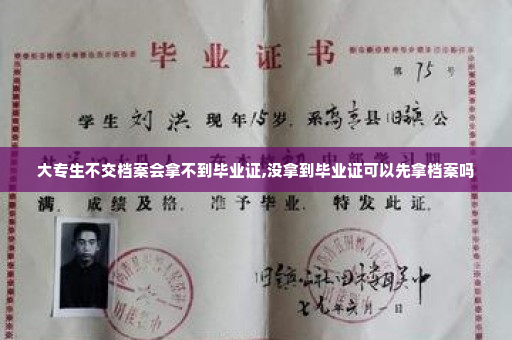 毕业证书
第 75 号
学生 刘洪 现年15岁,系高青县旧镇公
人,在本校 中部学习期
大专生不交档案会拿不到毕业证,没拿到毕业证可以先拿档案吗
满,成绩及格,准予毕业,特发此证。
旧镇公社旧镇联中
七九年六月一日